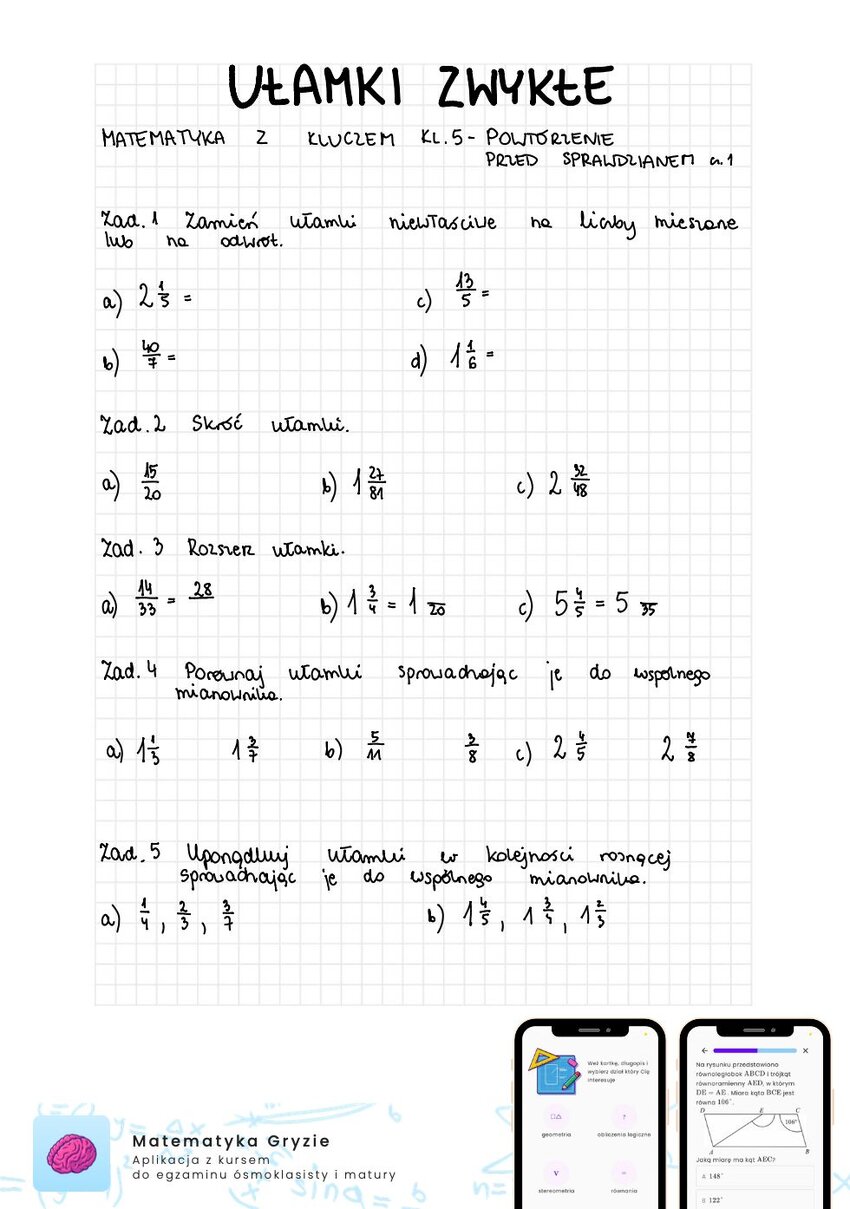 UŁAMKI ZWYKŁE
MATEMATYKA Z KLUCZEM KL.5 - POWTÓRZENIE
PRZED SPRAWDZIANEM cz.1
Zad. 1 Zamień ułamki niewłaściwe na liczby mieszane
lub na odwrót.
a) 2 1/5 =
c) 13/5 =
b) 40/7 =
d) 1 1/6 =
Zad. 2 Skróć ułamki.
a) 15/20 b) 1 27/81 c) 2 32/48
Zad. 3 Rozszerz ułamki.
a) 14/33 = 28/ b) 1 3/4 = 1 /20 c) 5 4/5 = 5 /35
Zad. 4 Porównaj ułamki sprowadzając je do wspólnego
mianownika.
a) 1 1/3 1 3/7 b) 5/11 3/8 c) 2 4/5 2 7/8
Zad. 5 Uporządkuj ułamki w kolejności rosnącej
sprowadzając je do wspólnego mianownika.
a) 1/4, 2/3, 3/7 b) 1 4/5, 1 3/4, 1 2/3
Matematyka Gryzie
Aplikacja z kursem
do egzaminu ósmoklasisty i matury
Weź kartkę, długopis i
wybierz dział który Cię
interesuje
geometria obliczenia logiczne
stereometria równania
Na rysunku przedstawiono
równoległobok ABCD i trójkąt
równoramienny AED, w którym
DE = AE. Miara kąta BCE jest
równa 106°.
D E C
106°
A B
Jaką miarę ma kąt AEC?
A 148°
B 122°